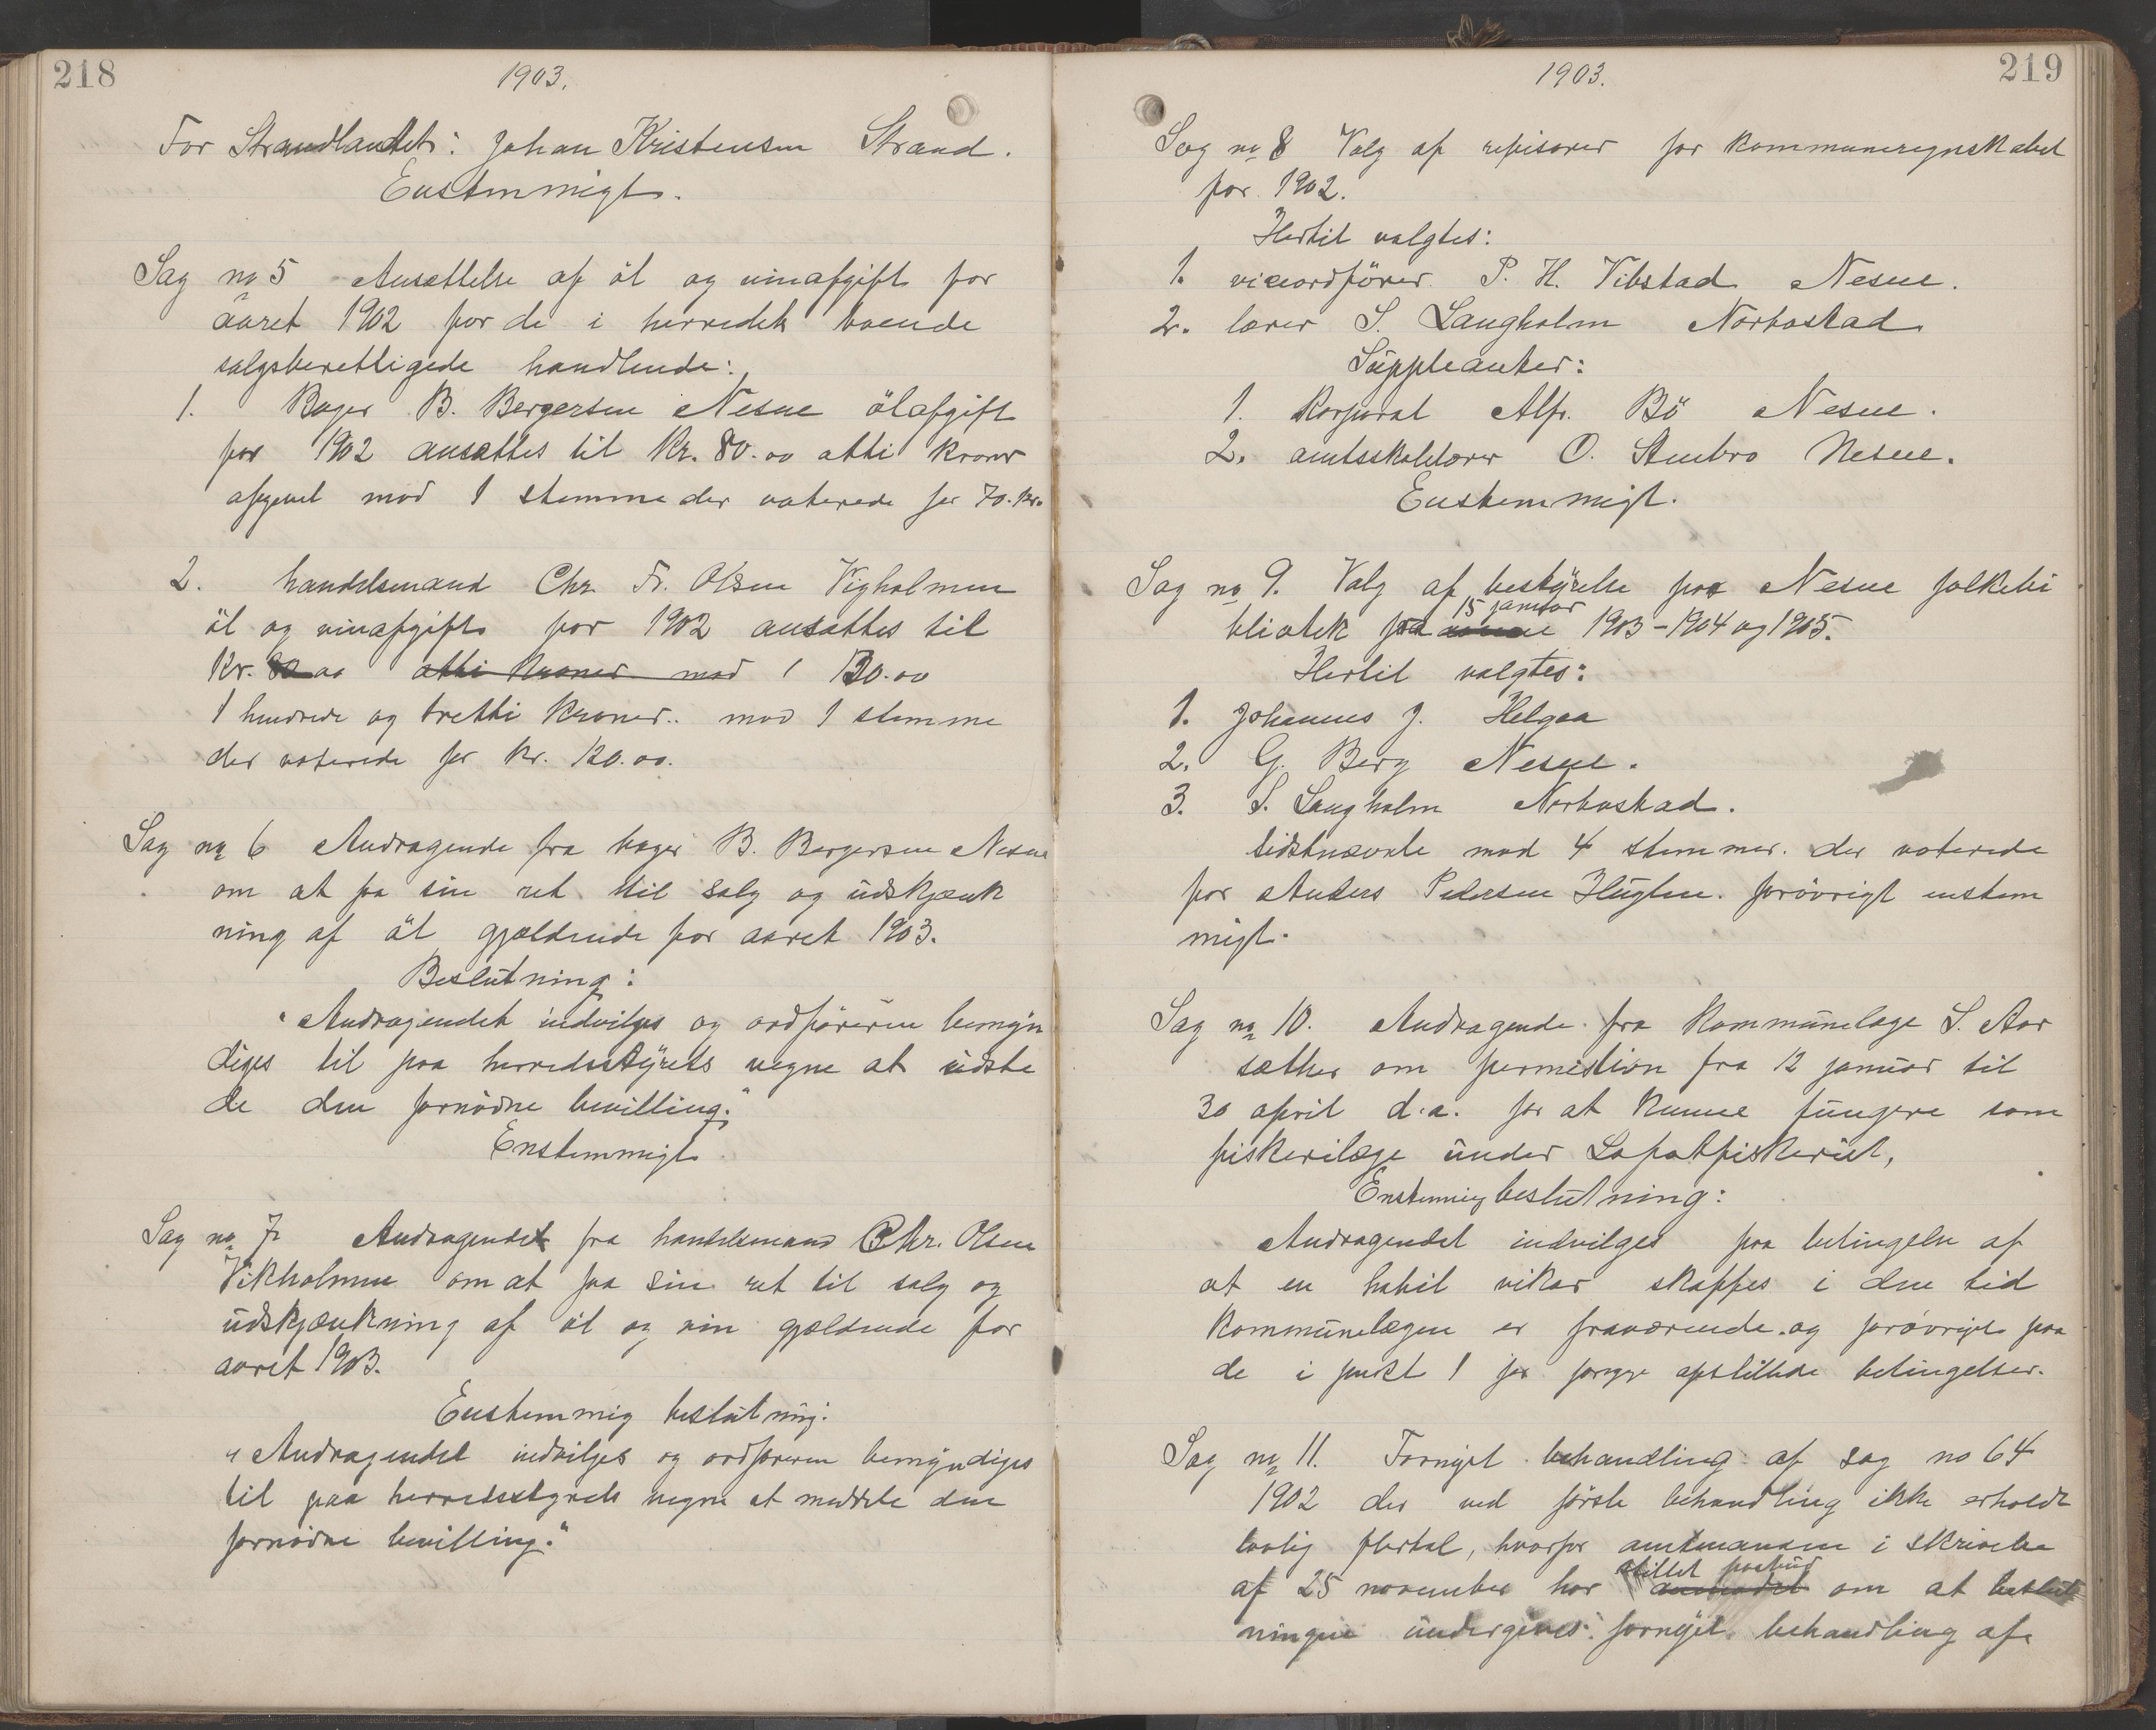 218
1903.
For Strandlandet: Johan Kristensen Strand.
Enstemmigt.
Sag no 5 Ansættelse af öl og vinafgift for
aaret 1902 for de i herredet boende
salgsberettigede handlende:
1. Bager B. Bergersen Nesne ölafgift
for 1902 ansættes til Kr. 80.00 otti kroner
afgivet mod 1 stemme der voterede for 70.kr.
2. handelsmand Chr. Fr. Olsen Vigholmen
öl og vinafgift for 1902 ansættes til
Kr. 80 00 otti Kroner mod 1 130.00
1 hundrede og tretti Kroner.. mod 1 stemme
der voterede for kr. 120.00.
Sag no 6 Andragende fra bager B. Bergersen Nesne
om at faa sin ret til salg og udskjænk
ning af öl gjældende for aaret 1903.
Beslutning:
"Andragendet indvilges og ordföreren bemyn
diges til paa herredsstyrets vegne at udste
de den fornödne bevilling."
Enstemmigt
Sag no 7 Andragendet fra handelsmand Chr. Olsen
Vikholmen om at faa sin ret til salg og
udskjænkning af öl og vin gjældende for
aaret 1903.
Enstemmig beslutning:
"Andragendet indvilges og ordföreren bemyndiges
til paa herredsstyrets vegne at meddele den
fornödne bevilling."
219
1903.
Sag no 8 Valg af revisorer for kommuneregnskabet
for 1902.
Hertil valgtes:
1. viceordförer P. H. Vibstad Nesne.
2. lærer S. Langholm Norbostad
Suppleanter:
1. Korporal Alfr. Bö Nesne.
2. amtsskolelærer O. Stenbro Nesne.
Enstemmigt.
Sag no 9. Valg af bestyrelse for Nesne folkebi
bliotek fra 15 januar 1903-1904 og 1905.
Hertil valgtes:
1. Johannes J. Helgaa
2. G. Berg Nesne.
3. S. Langholm Norbostad.
sidstnævnte mod 4 stemmer. der voterede
for Anders Pedersen Hugten. forövrigt enstem
migt.
Sag no 10. Andragende fra Kommunelæge S. Aar
sæther om permission fra 12 januar til
30 april d.a. for at kunne fungere som
fiskerilæge under Lofotfiskeriet,
Enstemmig beslutning:
Andragendet indvilges paa betingelse af
at en habil vikar skaffes i den tid
Kommunelægen er fraværende og forövrigt paa
de i punkt 1 for forrige opstillede betingelser.
Sag no 11. Fornyet behandling af sag no 64
1902 der ved förste behandling ikke erholdt
lovlig flertal, hvorfor amtmanden i skrivelse
af 25 november har stillet paabud om at beslut
ningen undergives fornyet behandling af